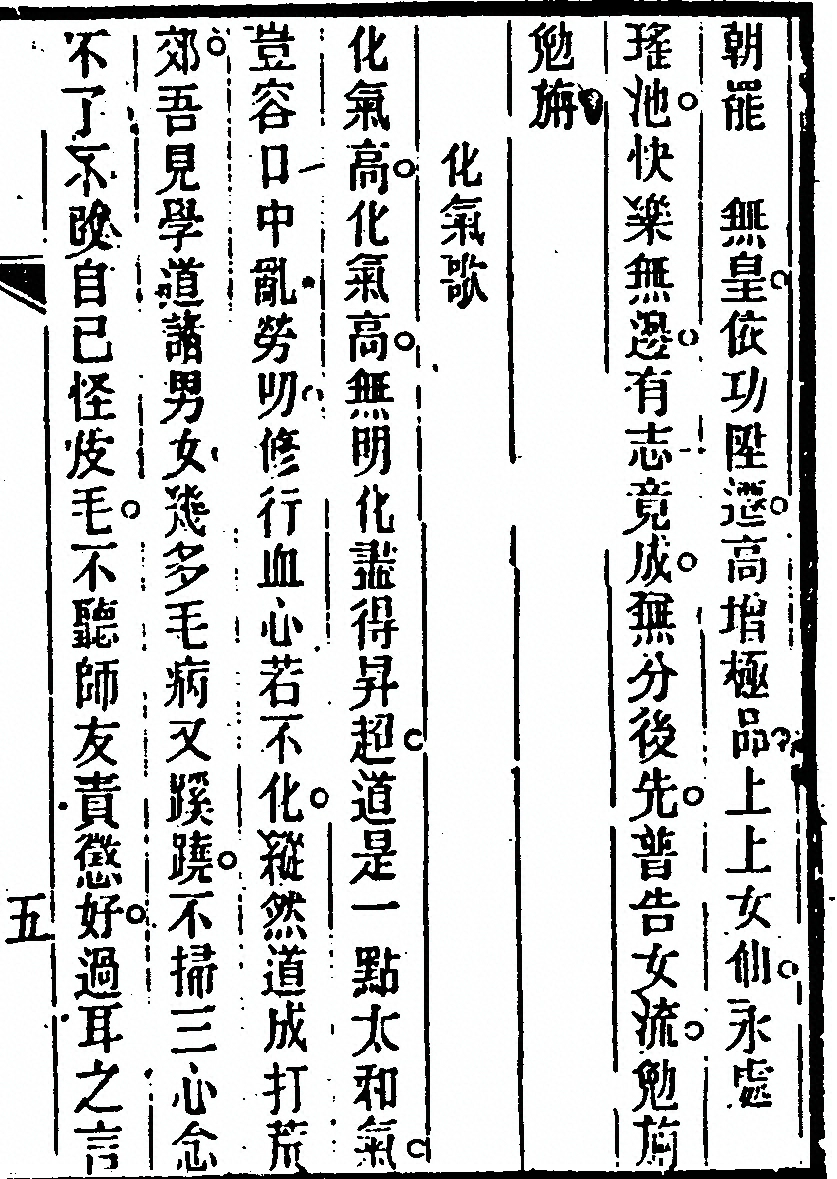 朝罷　無皇。依功陞遷高增極品。上上女仙。永處
瑤池。快樂無邊。有志竟成。無分後先。普告女流。勉旃
勉旃
化氣歌
化氣高。化氣高。無明化盡得昇超。道是一點太和氣。
豈容口中亂勞叨。修行血心若不化。縱然道成打荒
郊。吾見學道諸男女。幾多毛病又蹊蹺。不掃三心念
不了。不晚自己怪皮毛。不聽師友責懲好。過耳之言
五